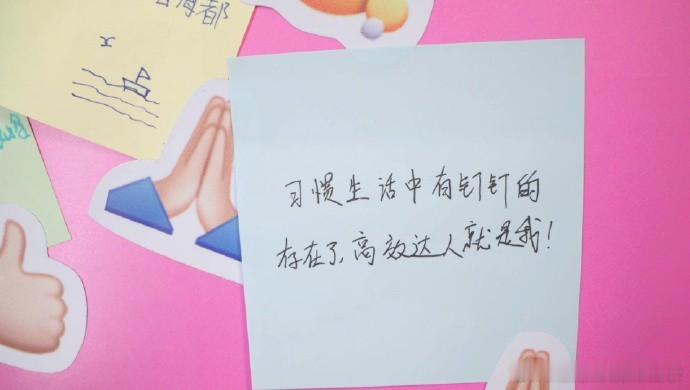 海都
习惯生活中有钉钉的
存在了，高效达人就是我！